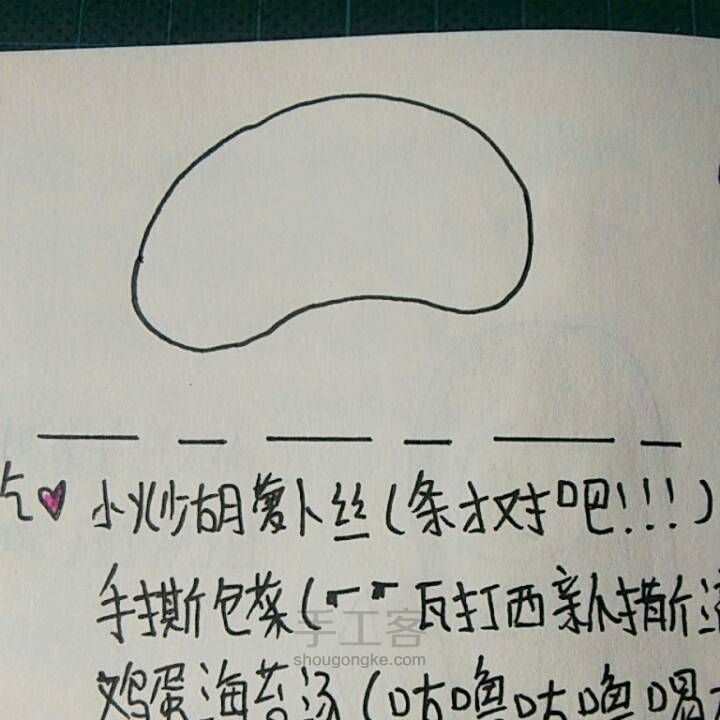 小火炒胡萝卜丝(条才对吧!!!)
手撕包菜(瓦打西亲手撕
手工客
shougongke.com
鸡蛋海苔汤(咕噜咕噜喝